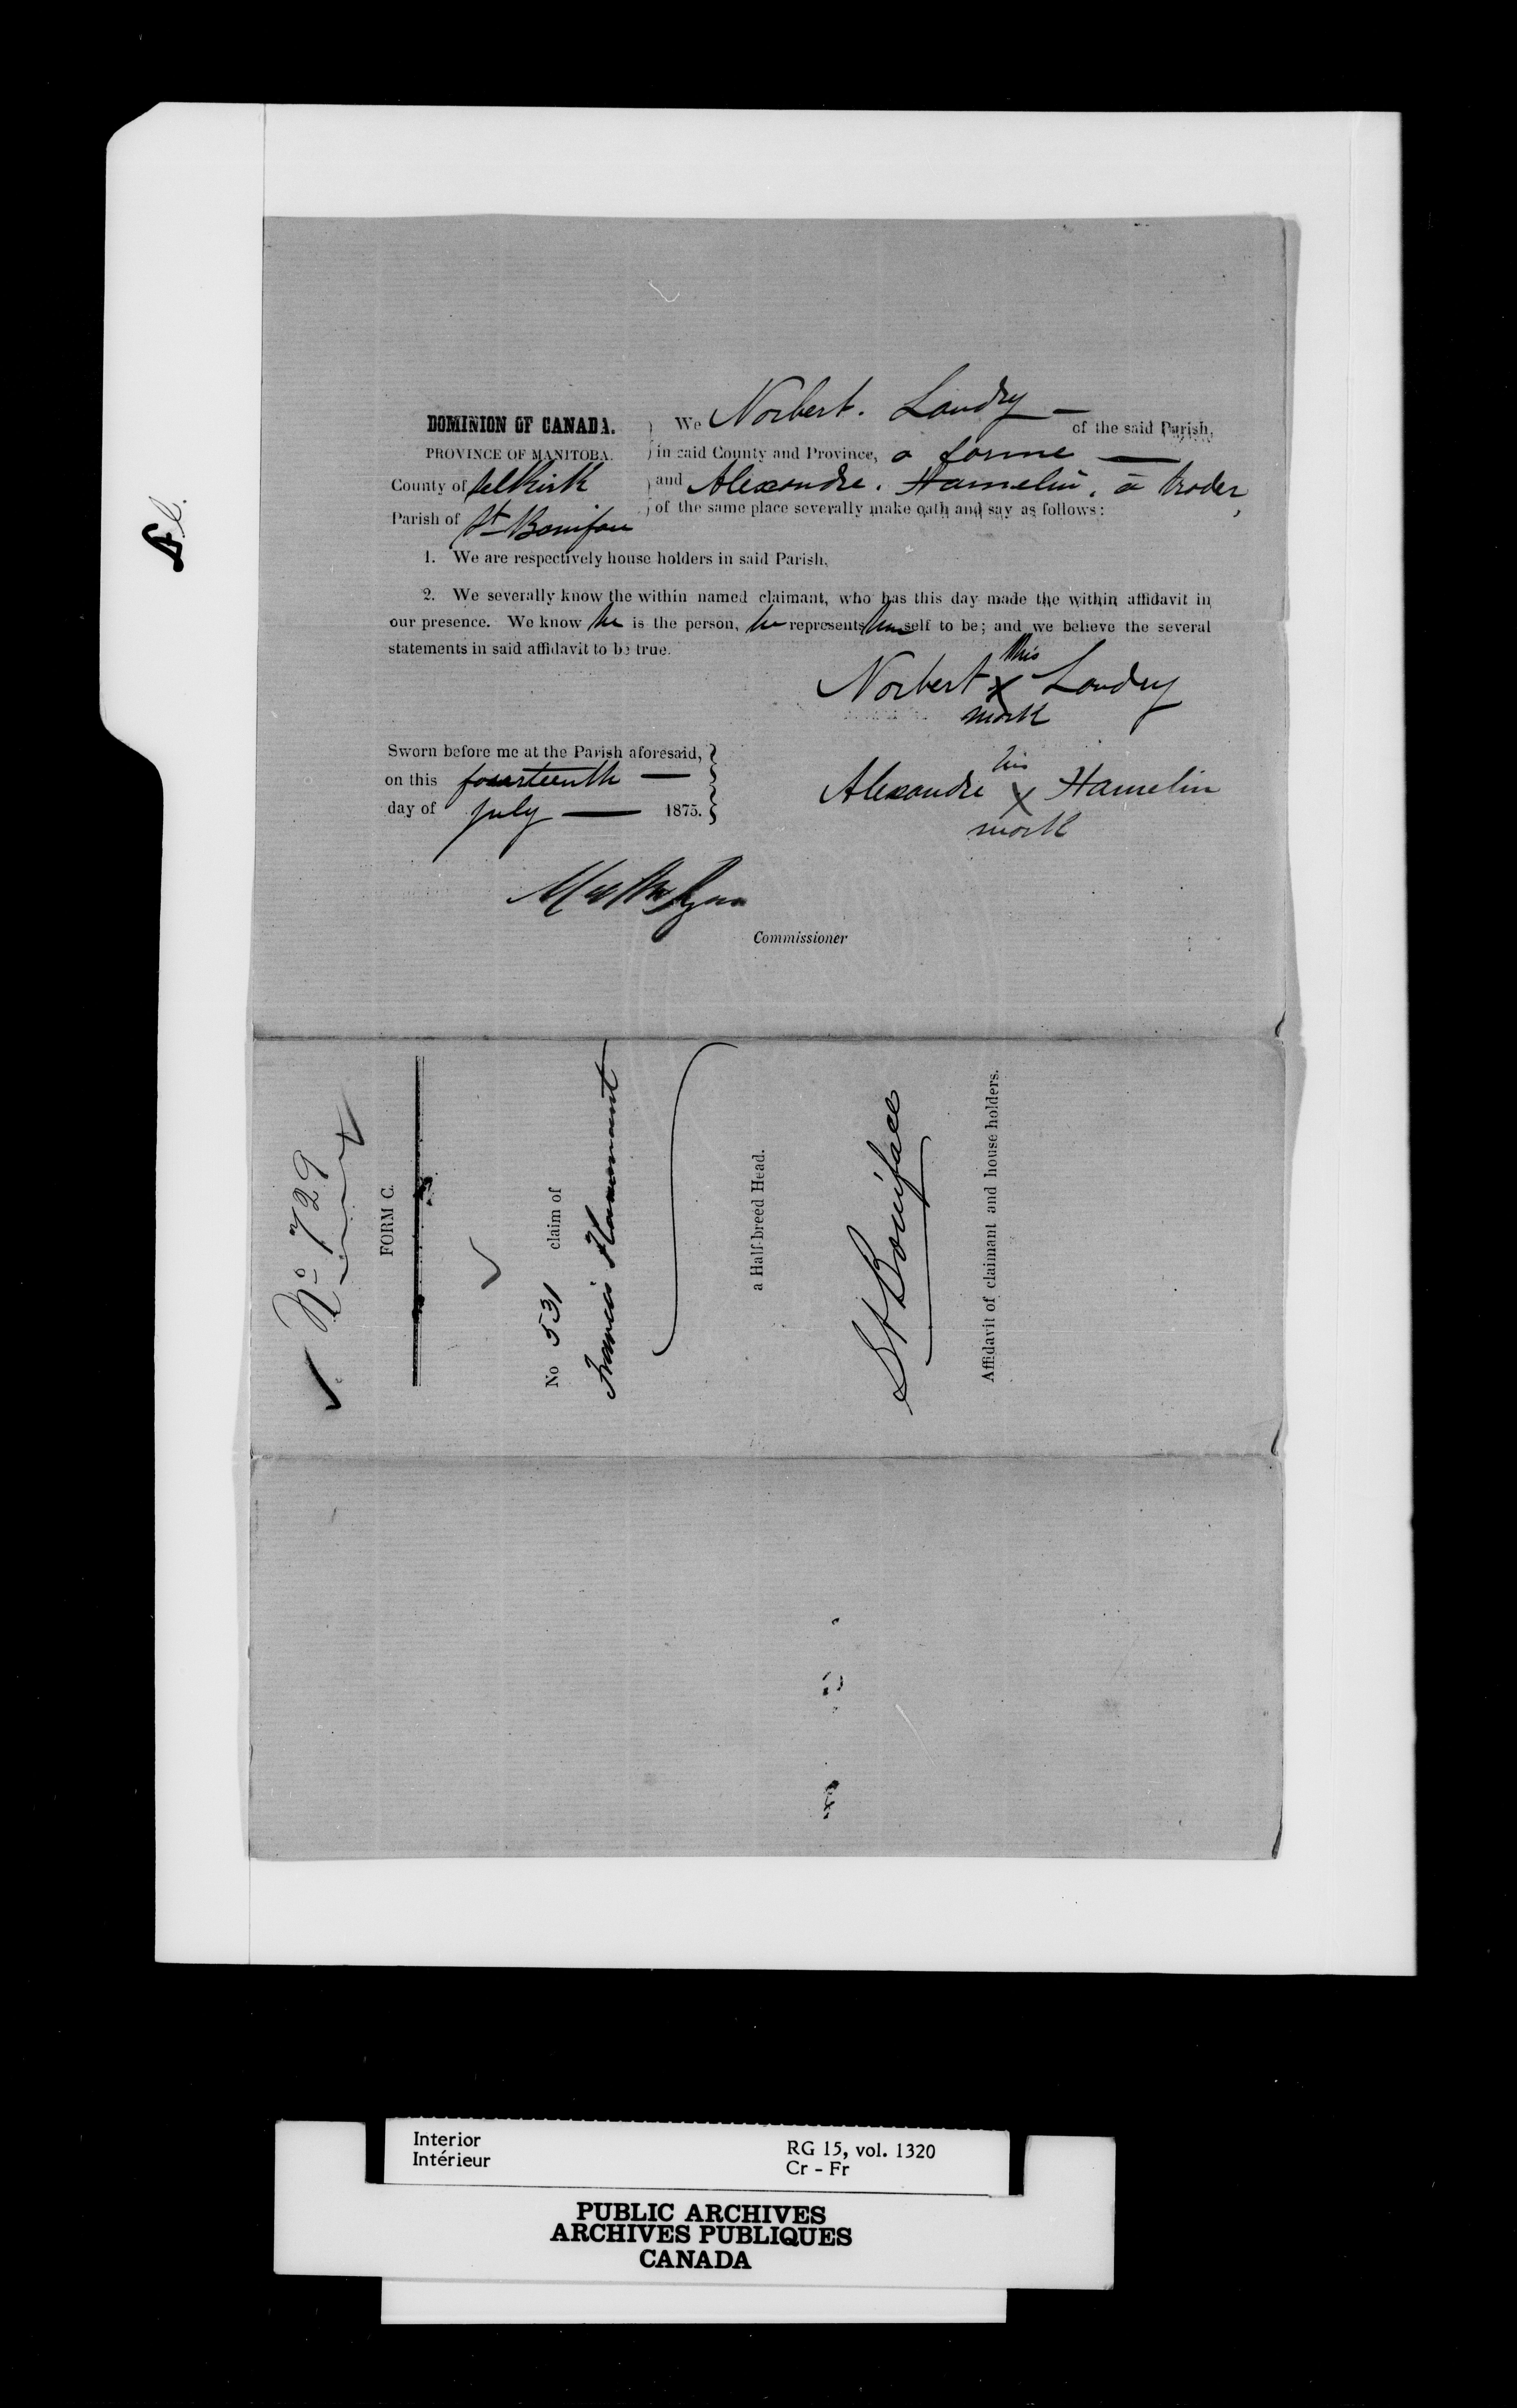 Fl.
DOMINION OF CANADA.
PROVINCE OF MANITOBA.
County of Selkirk
Parish of St Boniface
We Norbert. Landry — of the said Parish,
in said County and Province, a farme —
and Alexandre. Hamelin, a trader,
of the same place severally make oath and say as follows:
1. We are respectively house holders in said Parish.
2. We severally know the within named claimant, who has this day made the within affidavit in
our presence. We know he is the person, he represents himself to be; and we believe the several
statements in said affidavit to be true.
his
Norbert X Landry
mark
Sworn before me at the Parish aforesaid,
on this fourteenth —
day of July — 1875.
his
Alexandre X Hamelin
mark
Commissioner
No 729
FORM C.
No 531 claim of
Francis Flammant
a Half-breed Head.
St Boniface
Affidavit of claimant and house holders.
Interior
Intérieur
RG 15, vol. 1320
Cr - Fr
PUBLIC ARCHIVES
ARCHIVES PUBLIQUES
CANADA